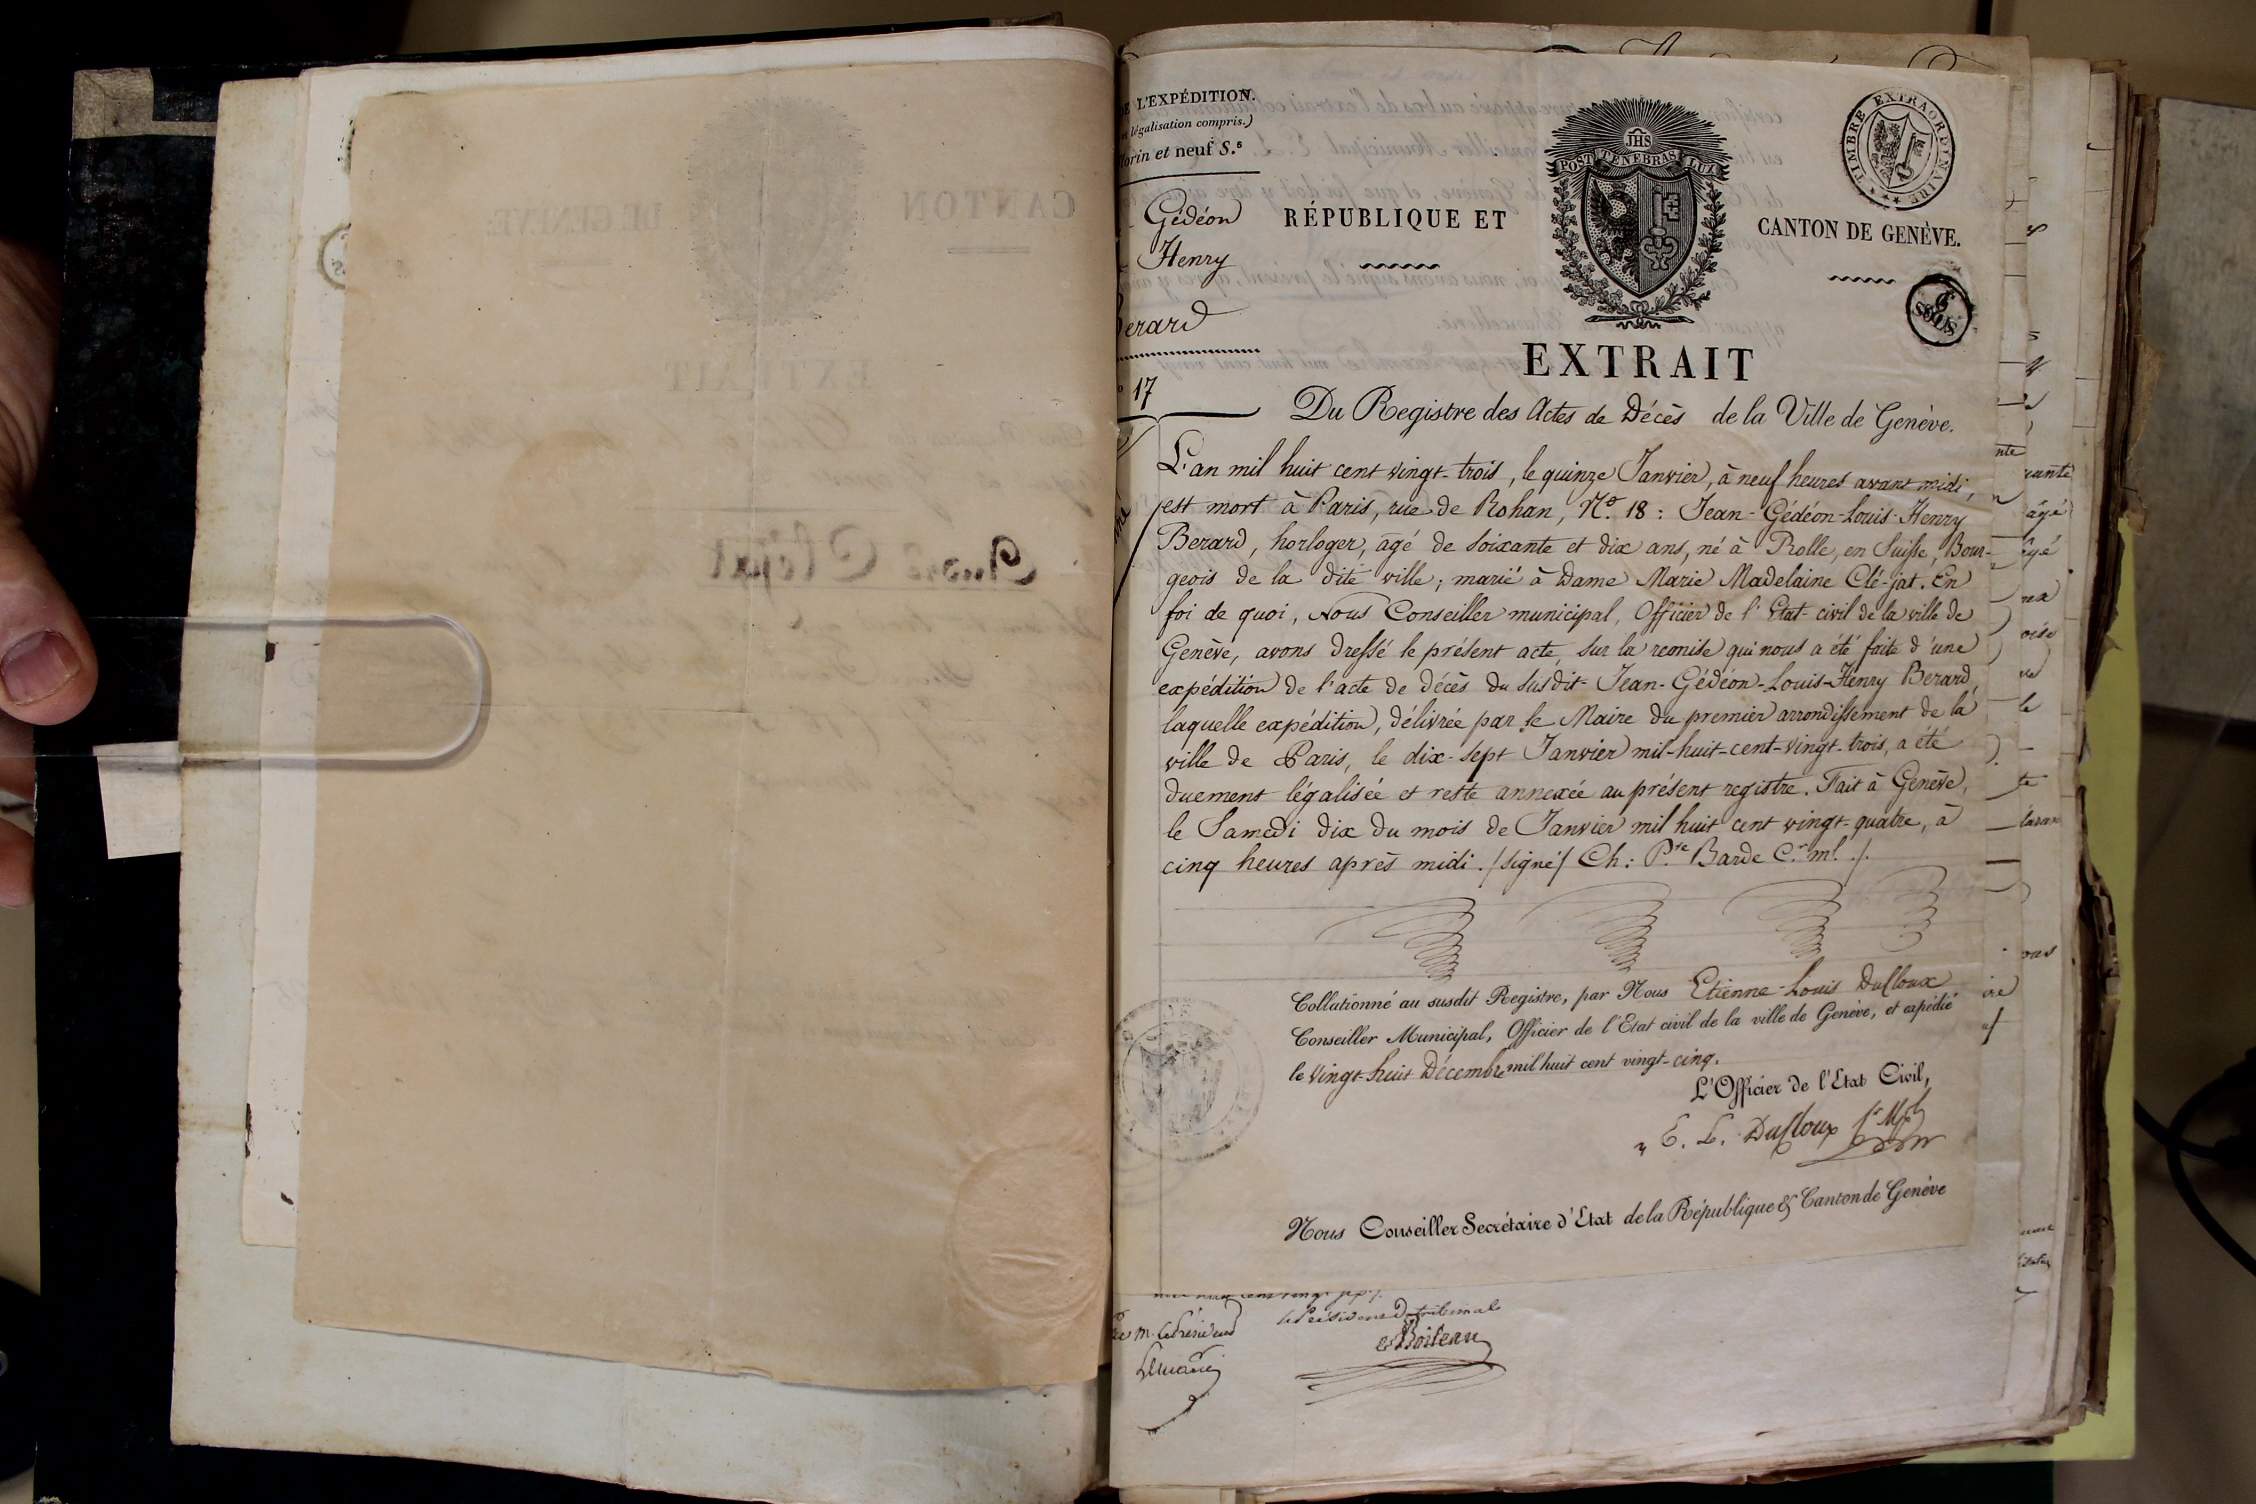 L'EXPÉDITION.
légalisation compris.)
et neuf S.s
Gédéon
Henry
erard
17
JHS
POST TENEBRAS LUX
TIMBRE EXTRAORDINAIRE
RÉPUBLIQUE ET
CANTON DE GENÈVE.
6 SOUS
EXTRAIT
Du Registre des Actes de Décès de la Ville de Genève.
L'an mil huit cent vingt-trois, le quinze Janvier, à neuf heures avant midi,
est mort à Paris, rue de Rohan, No. 18 : Jean-Gédéon-Louis-Henry
Berard, horloger, agé de soixante et dix ans, né à Rolle, en Suisse, Bour-
geois de la dite ville ; marié à Dame Marie Madelaine Clé-jat. En
foi de quoi, Nous Conseiller municipal, Officier de l'Etat-civil de la ville de
Genève, avons dressé le présent acte, sur la remise qui nous a été faite d'une
expédition de l'acte de décès du susdit Jean-Gédéon-Louis-Henry Berard,
laquelle expédition, délivrée par le Maire du premier arrondissement de la
ville de Paris, le dix-sept Janvier mil-huit-cent-vingt-trois, a été
duement légalisée et reste annexée au présent registre. Fait à Genève,
le Samedi dix du mois de Janvier mil huit cent vingt-quatre, à
cinq heures après midi. /signé/ Ch: P.re Barde C.r m.l ./.
Collationné au susdit Registre, par Nous Etienne-Louis Dufloux
Conseiller Municipal, Officier de l'Etat civil de la ville de Genève, et expédié
le vingt-huit Décembre mil huit cent vingt-cinq.
L'Officier de l'Etat Civil,
E. L. Dufloux
Nous Conseiller Secrétaire d'Etat de la République & Canton de Genève
Boileau
CANTON DE GENÈVE
EXTRAIT